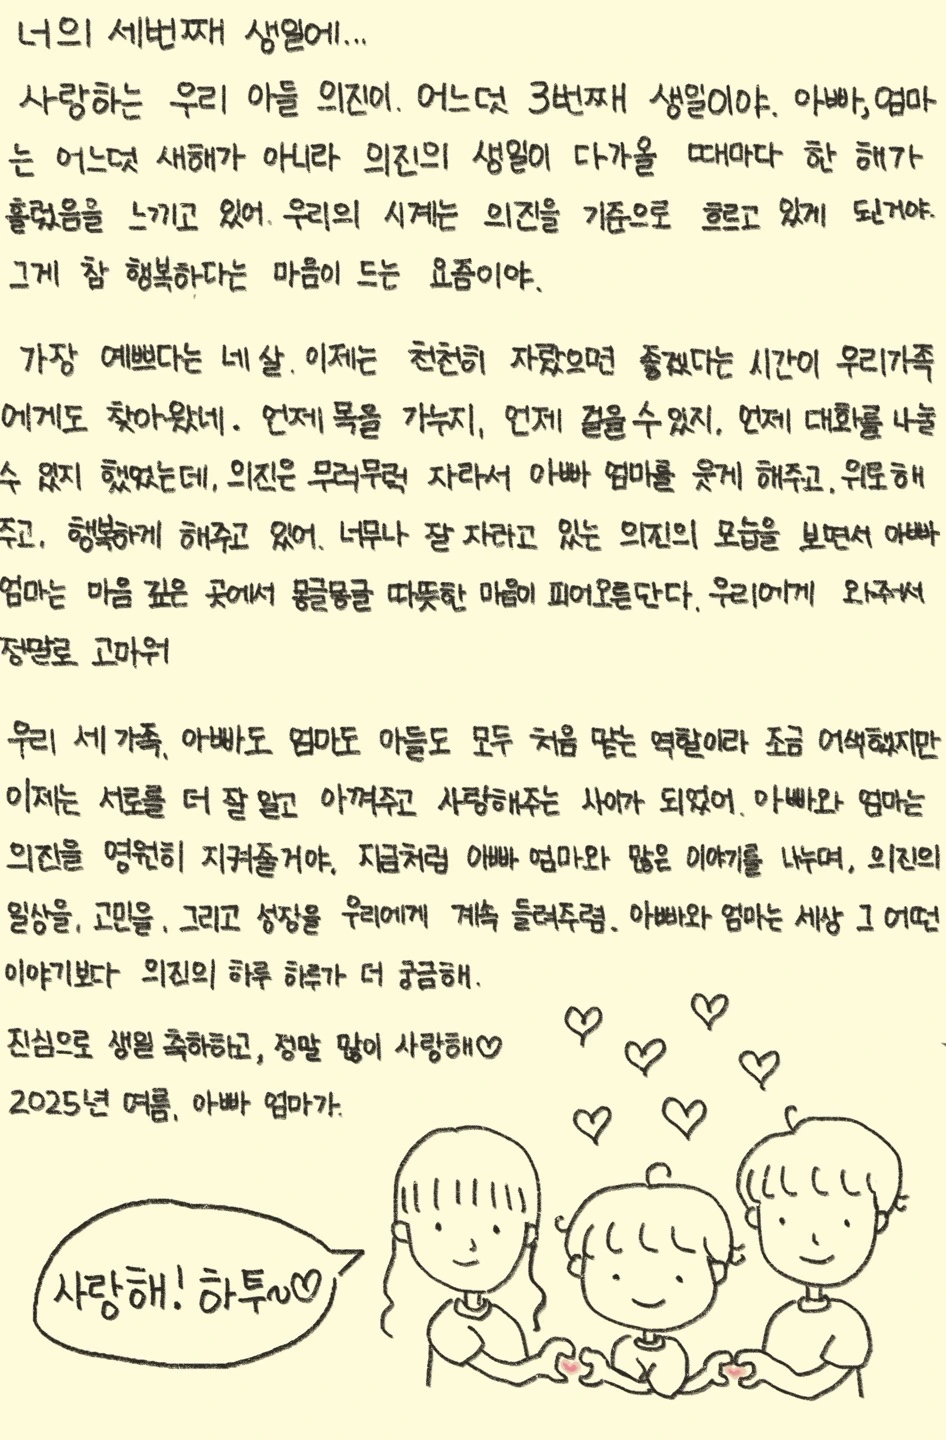 너의 세번째 생일에...
사랑하는 우리 아들 의진이. 어느덧 3번째 생일이야. 아빠, 엄마
는 어느덧 새해가 아니라 의진의 생일이 다가올 때마다 한 해가
흘렀음을 느끼고 있어. 우리의 시계는 의진을 기준으로 흐르고 있게 된거야.
그게 참 행복하다는 마음이 드는 요즘이야.
가장 예쁘다는 네 살. 이제는 천천히 자랐으면 좋겠다는 시간이 우리가족
에게도 찾아왔네. 언제 목을 가누지, 언제 걸을 수 있지, 언제 대화를 나눌
수 있지 했었는데, 의진은 무럭무럭 자라서 아빠 엄마를 웃게 해주고, 위로해
주고, 행복하게 해주고 있어. 너무나 잘 자라고 있는 의진의 모습을 보면서 아빠
엄마는 마음 깊은 곳에서 몽글몽글 따뜻한 마음이 피어오른단다. 우리에게 와줘서
정말로 고마워
우리 세 가족, 아빠도 엄마도 아들도 모두 처음 맡는 역할이라 조금 어색했지만
이제는 서로를 더 잘 알고 아껴주고 사랑해주는 사이가 되었어. 아빠와 엄마는
의진을 영원히 지켜줄거야. 지금처럼 아빠 엄마와 많은 이야기를 나누며, 의진의
일상을, 고민을, 그리고 성장을 우리에게 계속 들려주렴. 아빠와 엄마는 세상 그 어떤
이야기보다 의진의 하루 하루가 더 궁금해.
진심으로 생일 축하하고, 정말 많이 사랑해♡
2025년 여름, 아빠 엄마가.
사랑해! 하투~♡